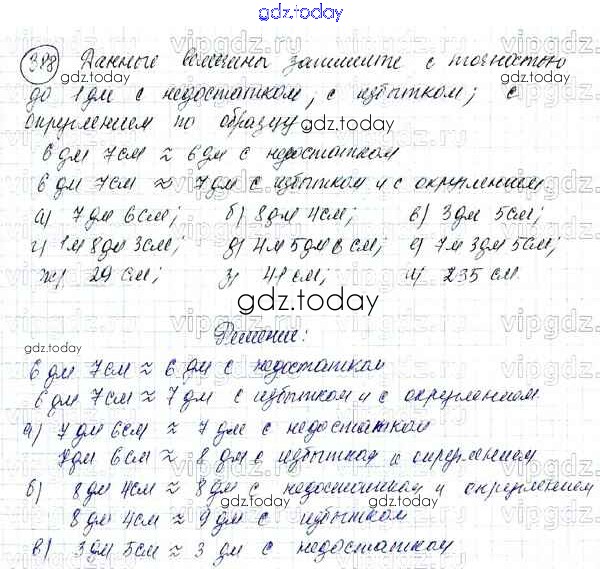 gdz.today
388 Данные величины запишите с точностью
gdz.today
до 1 дм с недостатком; с избытком; с
округлением по образцу gdz.today
6 дм 7 см ≈ 6 дм с недостатком
6 дм 7 см ≈ 7 дм с избытком и с округлением
а) 7 дм 6 см; б) 8 дм 4 см; в) 3 дм 5 см;
г) 1 м 8 дм 3 см; д) 4 м 5 дм 6 см; е) 7 м 3 дм 5 см;
ж) 29 см; з) 41 см; и) 235 см
gdz.today
Решение:
gdz.today
6 дм 7 см ≈ 6 дм с недостатком
6 дм 7 см ≈ 7 дм с избытком и с округлением
а) 7 дм 6 см ≈ 7 дм с недостатком
7 дм 6 см ≈ 8 дм с избытком и округлением
б) 8 дм 4 см ≈ 8 дм с недостатком и округлением
8 дм 4 см ≈ 9 дм с избытком
в) 3 дм 5 см ≈ 3 дм с недостатком
gdz.today